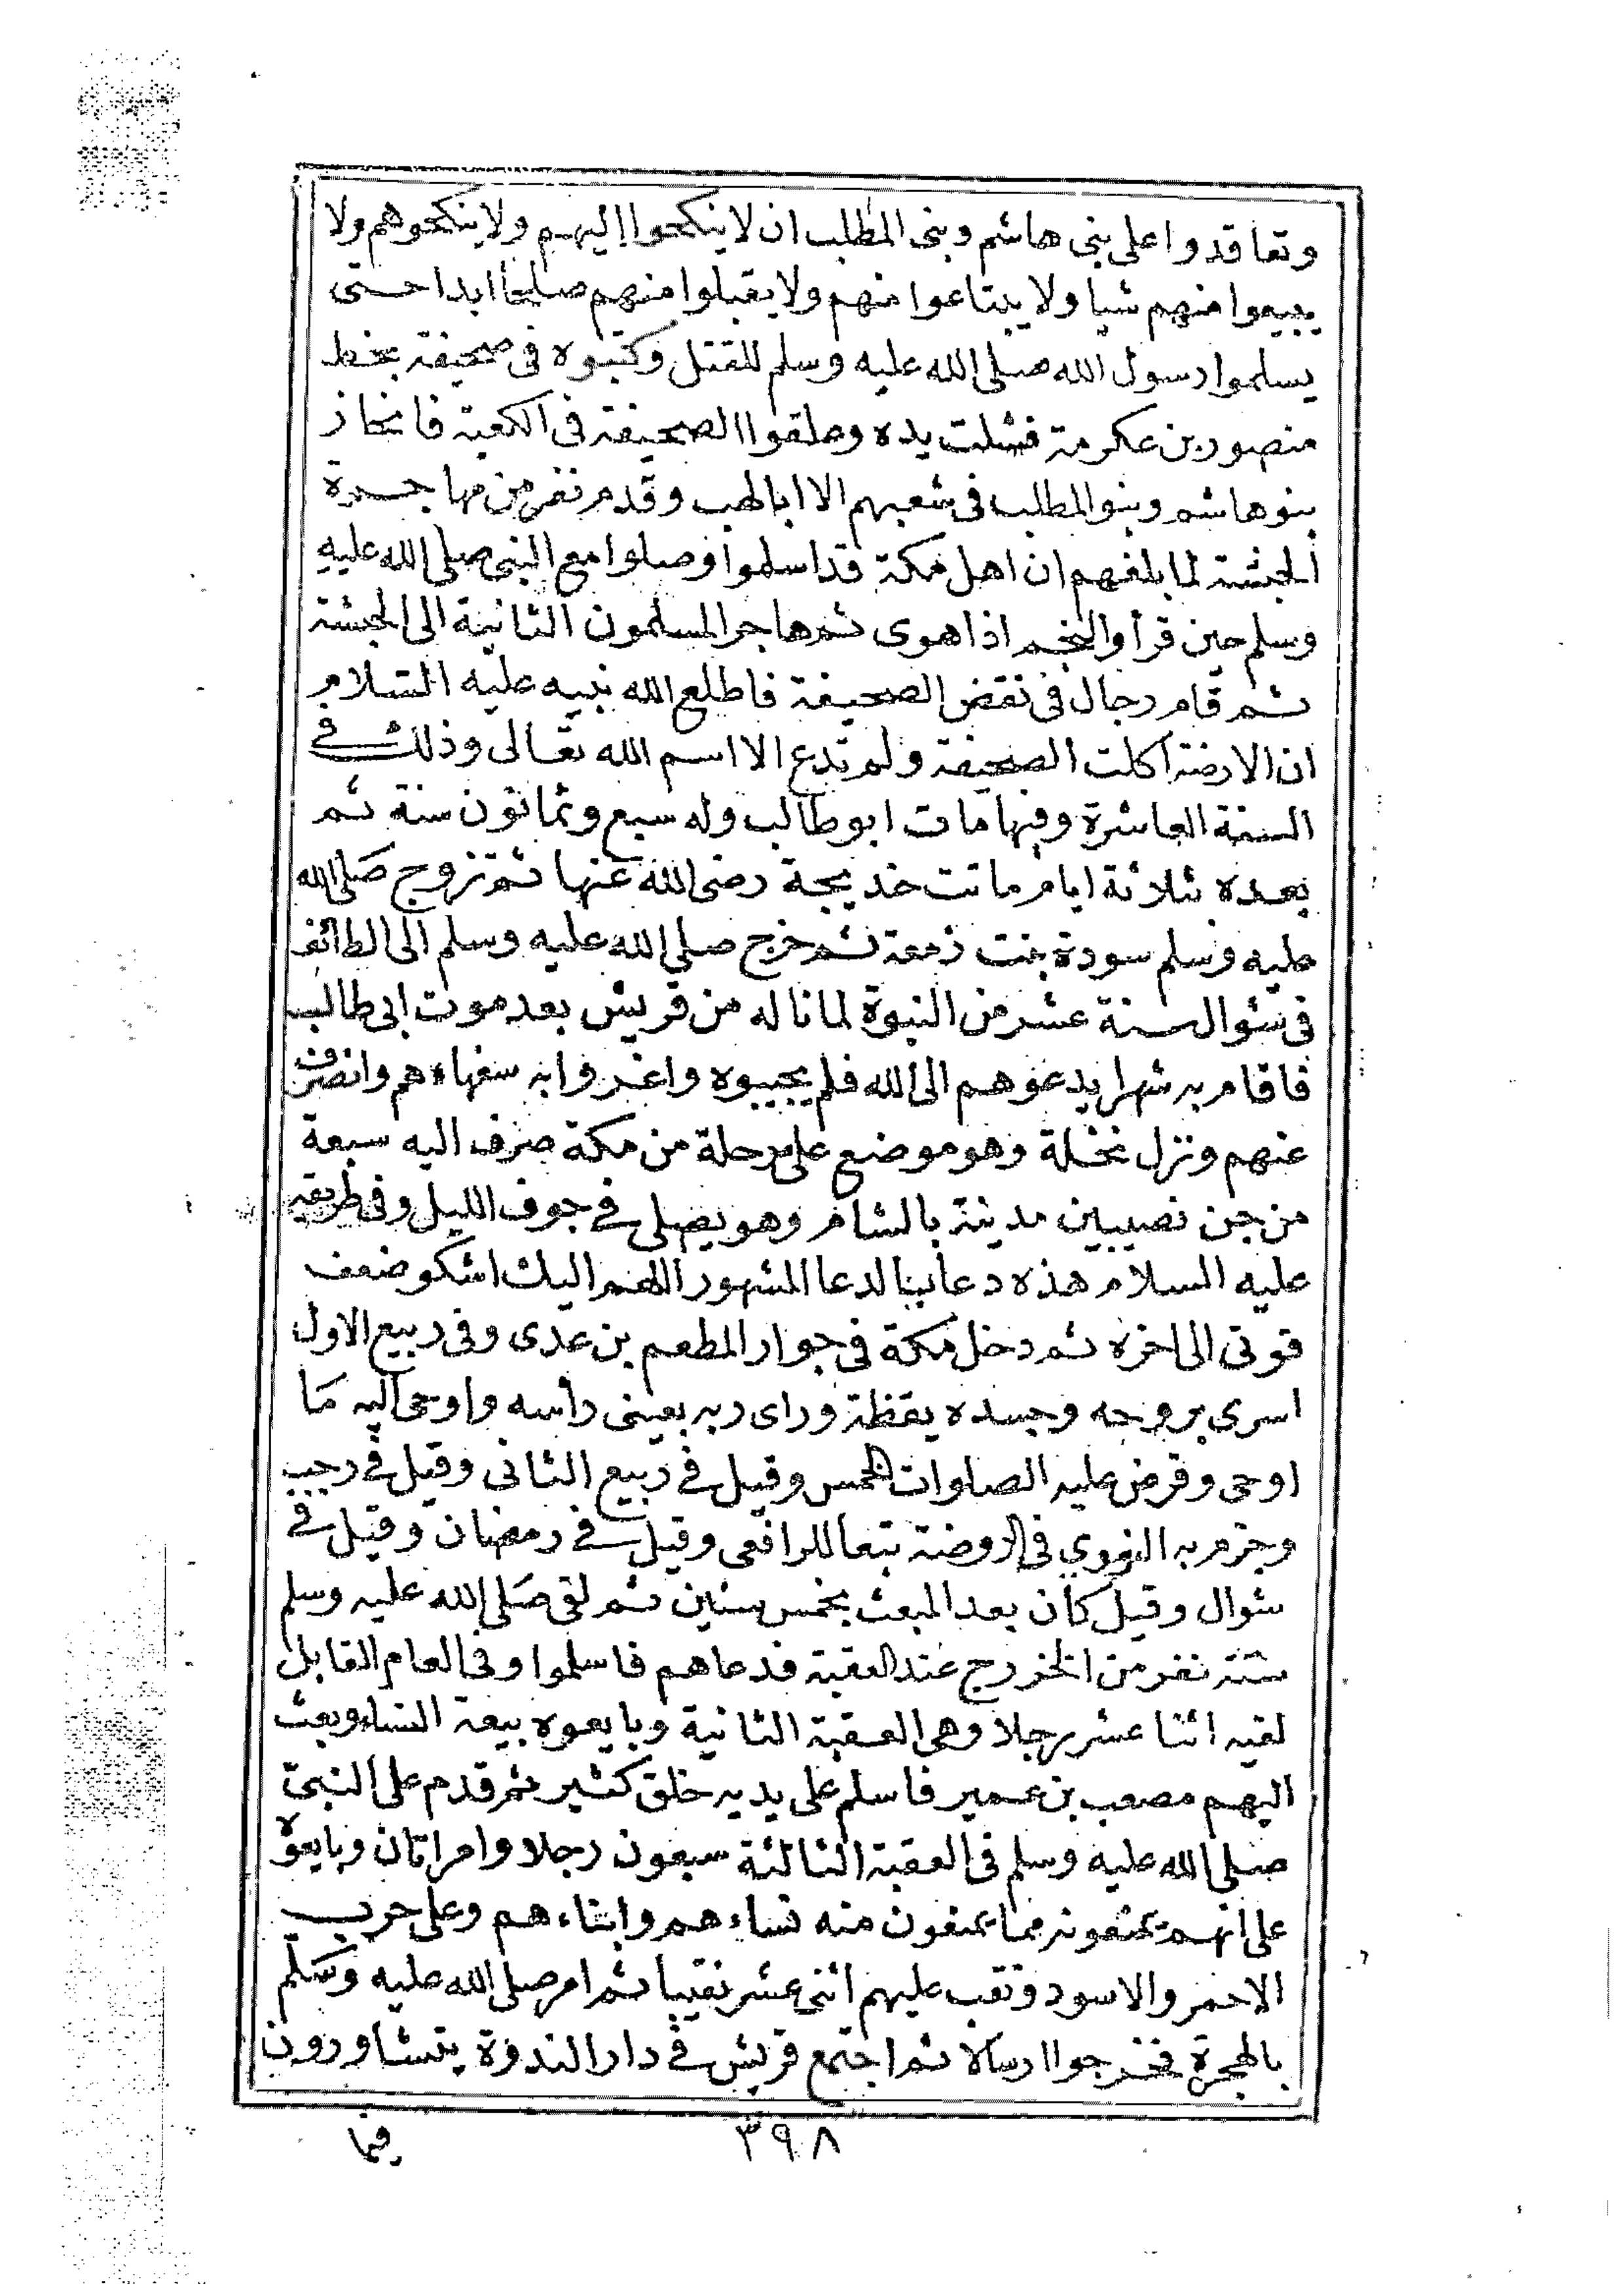 وتعاقدوا على بنى هاشم وبنى المطلب ان لا ينكحوا اليهم ولا ينكحوهم ولا
يبيعوا منهم شيا ولا يبتاعوا منهم ولا يقبلوا منهم صلحا ابدا حتى
يسلموا رسول الله صلى الله عليه وسلم للقتل وكتبوه فى صحيفة بخط
منصور بن عكرمة فشلت يده وعلقوا الصحيفة فى الكعبة فانحاز
بنوهاشم وبنو المطلب فى شعبهم الا ابا لهب وقدم نفر من مهاجرة
الحبشة لما بلغهم ان اهل مكة قد اسلموا وصلوا مع النبى صلى الله عليه
وسلم حين قرأ والنجم اذا هوى ثم هاجر المسلمون الثانية الى الحبشة
ثم قام رجال فى نقض الصحيفة فاطلع الله نبيه عليه السلام
ان الارضة اكلت الصحيفة ولم تدع الا اسم الله تعالى وذلك فى
السنة العاشرة وفيها مات ابو طالب وله سبع وثمانون سنة ثم
بعده بثلاثة ايام ماتت خديجة رضى الله عنها ثم تزوج صلى الله
عليه وسلم سودة بنت زمعة ثم خرج صلى الله عليه وسلم الى الطائف
فى شوال سنة عشر من النبوة لما ناله من قريش بعد موت ابى طالب
فاقام به شهرا يدعوهم الى الله فلم يجيبوه واغروا به سفهاءهم وانصرف
عنهم ونزل نخلة وهو موضع على مرحلة من مكة صرف اليه سبعة
من جن نصيبين مدينة بالشام وهو يصلى فى جوف الليل وفى طريقه
عليه السلام هذه دعا بالدعا المشهور اللهم اليك اشكو ضعف
قوتى الى اخره ثم دخل مكة فى جوار المطعم بن عدى وفى ربيع الاول
اسرى بروحه وجسده يقظة وراى ربه بعينى رأسه واوحى اليه ما
اوحى وفرض عليه الصلوات الخمس وقيل فى ربيع الثانى وقيل فى رجب
وجزم به النووي فى الروضة تبعا للرافعى وقيل فى رمضان وقيل فى
شوال وقيل كان بعد المبعث بخمس سنين ثم لقى صلى الله عليه وسلم
ستة نفر من الخزرج عند العقبة فدعاهم فاسلموا وفى العام القابل
لقيه اثنا عشر رجلا وهى العقبة الثانية وبايعوه بيعة النساء وبعث
اليهم مصعب بن عمير فاسلم على يديه خلق كثير ثم قدم على النبى
صلى الله عليه وسلم فى العقبة الثالثة سبعون رجلا وامراتان وبايعوه
على انهم يمنعونه مما يمنعون منه نساءهم وابناءهم وعلى حرب
الاحمر والاسود ونقب عليهم اثنى عشر نقيبا ثم امر صلى الله عليه وسلم
بالهجرة فخرجوا ارسالا ثم اجتمع قريش فى دار الندوة يتشاورون
فيما
٣٩٨